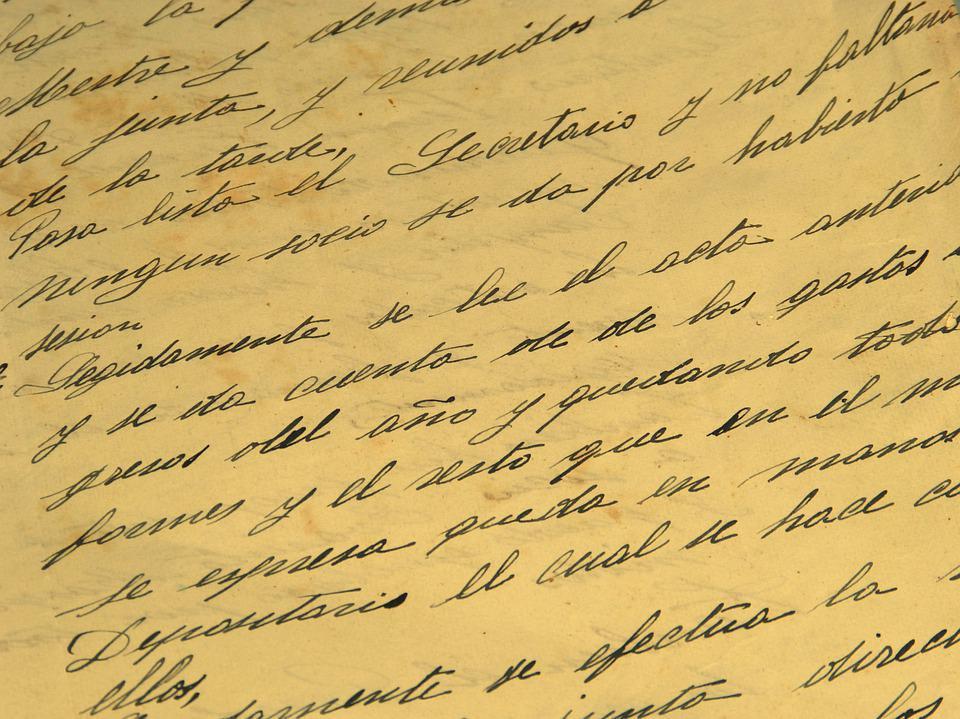 bajo la
Mestre y demas
la junta, y reunidos a
de la tarde,
Pasa lista el Secretario y no faltand
ningun socio se da por habierto
sesion
Segidamente se lee el acta anterio
y se da cuenta de de los gastos
gresos del año y quedando todo
formes y el resto que en el m
se espresa queda en manos
Depositario el cual se hace ca
ellos,
damente se efectua la
junta direc
los